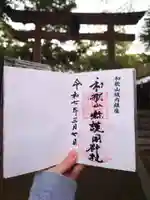 和歌山城内鎮座
和歌山縣護國神社
令和七年三月七日